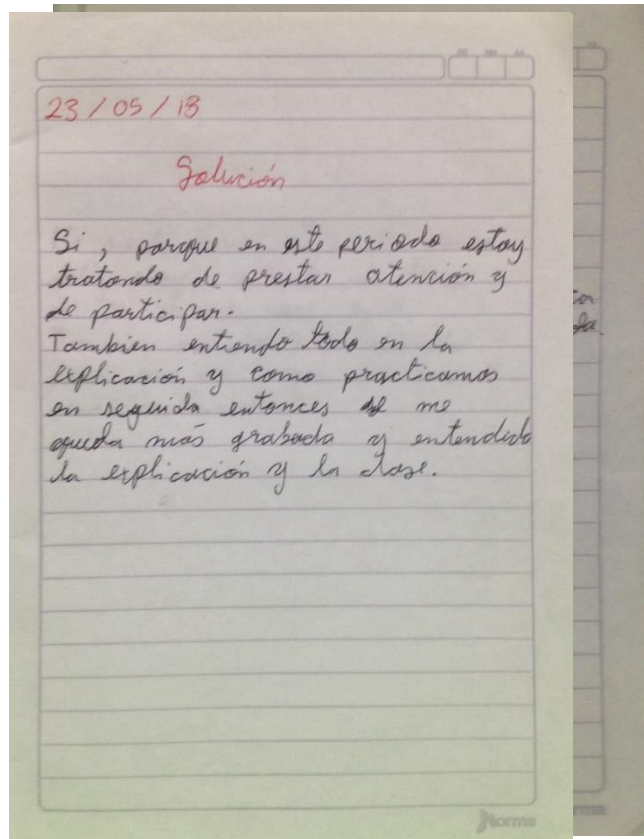 23/05/18
Solución
Si, porque en este periodo estoy
tratando de prestar atención y
de participar.
Tambien entiendo todo en la
explicación y como practicamos
en seguida entonces se me
queda más grabada y entendida
la explicación y la clase.
Norma